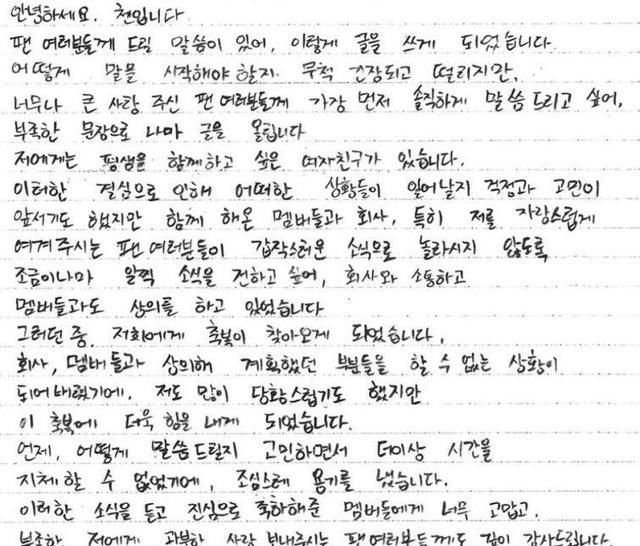 안녕하세요. 첸입니다.
팬 여러분들께 드릴 말씀이 있어, 이렇게 글을 쓰게 되었습니다.
어떻게 말을 시작해야할지 무척 긴장되고 떨리지만,
너무나 큰 사랑 주신 팬 여러분들께 가장 먼저 솔직하게 말씀드리고 싶어,
부족한 문장으로 나마 글을 올립니다
저에게는 평생을 함께하고 싶은 여자친구가 있습니다.
이러한 결심으로 인해 어떠한 상황들이 일어날지 걱정과 고민이
앞서기도 했지만 함께 해온 멤버들과 회사, 특히 저를 자랑스럽게
여겨주시는 팬 여러분들이 갑작스러운 소식으로 놀라시지 않도록
조금이나마 일찍 소식을 전하고 싶어, 회사와 소통하고
멤버들과도 상의를 하고 있었습니다
그러던 중, 저희에게 축복이 찾아오게 되었습니다.
회사, 멤버들과 상의해 계획했던 부분들을 할 수 없는 상황이
되어버렸기에. 저도 많이 당황스럽기도 했지만
이 축복에 더욱 힘을 내게 되었습니다.
언제, 어떻게 말씀드릴지 고민하면서 더이상 시간을
지체할 수 없었기에, 조심스레 용기를 냈습니다.
이러한 소식을 듣고 진심으로 축하해준 멤버들에게 너무 고맙고.
부족한 저에게 과분한 사랑 보내주시는 팬 여러분들께도 깊이 감사드립니다.